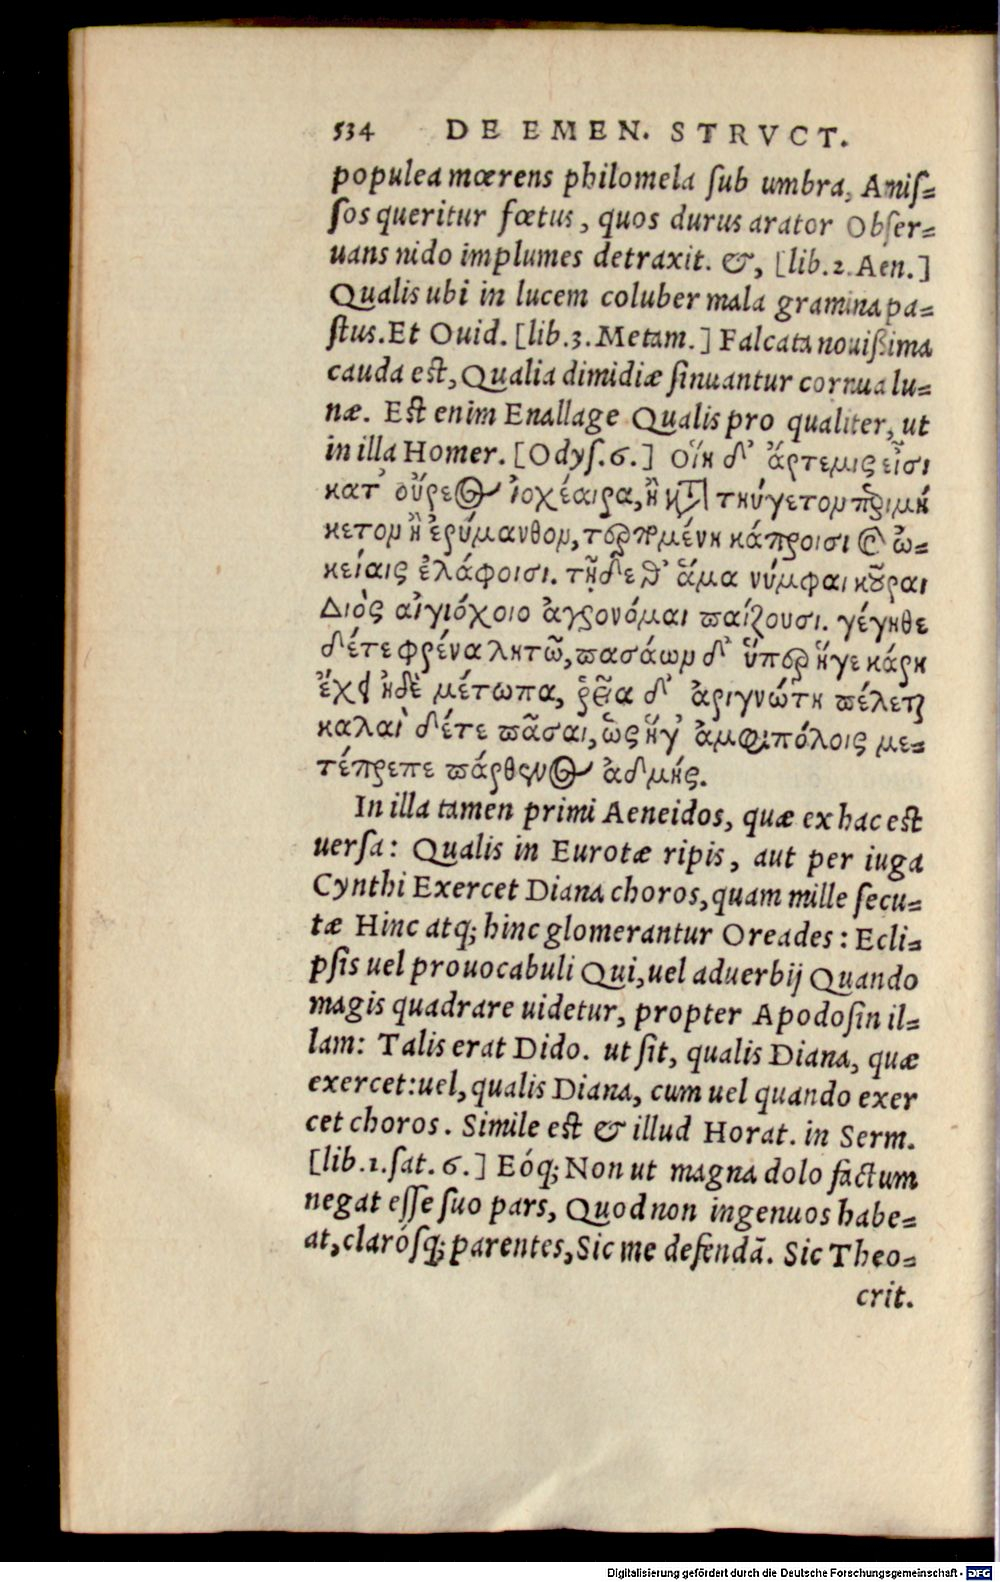 534 DE EMEN. STRVCT.
populea mœrens philomela ſub umbra, Amiſ=
ſos queritur fœtus, quos durus arator Obſer=
uans nido implumes detraxit. &, [lib.2.Aen.]
Qualis ubi in lucem coluber mala gramina pa=
ſtus. Et Ouid. [lib.3.Metam.] Falcata nouißima
cauda eſt, Qualia dimidiæ ſinuantur cornua lu=
næ. Eſt enim Enallage Qualis pro qualiter, ut
in illa Homer. [Odyſ.6.] Οἵη δ' ἄρτεμις εἶσι
κατ' οὔρεος ἰοχέαιρα, ἢ κατὰ τηύγετον περιμή
κετον ἢ ἐρύμανθον, τερπομένη κάπροισι καὶ ὠ=
κείαις ἐλάφοισι. τῇ δέ θ' ἅμα νύμφαι κοῦραι
Διὸς αἰγιόχοιο ἀγρονόμαι παίζουσι. γέγηθε
δέ τε φρένα λητῶ, πασάων δ' ὕπερ ἥγε κάρη
ἔχει ἠδὲ μέτωπα, ῥεῖα δ' ἀριγνώτη πέλεται
καλαὶ δέ τε πᾶσαι, ὣς ἥγ' ἀμφιπόλοις με=
τέπρεπε πάρθενος ἀδμής.
In illa tamen primi Aeneidos, quæ ex hac eſt
uerſa: Qualis in Eurotæ ripis, aut per iuga
Cynthi Exercet Diana choros, quam mille ſecu=
tæ Hinc atq; hinc glomerantur Oreades: Ecli=
pſis uel prouocabuli Qui, uel aduerbij Quando
magis quadrare uidetur, propter Apodoſin il=
lam: Talis erat Dido. ut ſit, qualis Diana, quæ
exercet: uel, qualis Diana, cum uel quando exer
cet choros. Simile eſt & illud Horat. in Serm.
[lib.1.ſat.6.] Eóq; Non ut magna dolo factum
negat eſſe ſuo pars, Quod non ingenuos habe=
at, claróſq; parentes, Sic me defendā. Sic Theo=
crit.
Digitalisierung gefördert durch die Deutsche Forschungsgemeinschaft - DFG